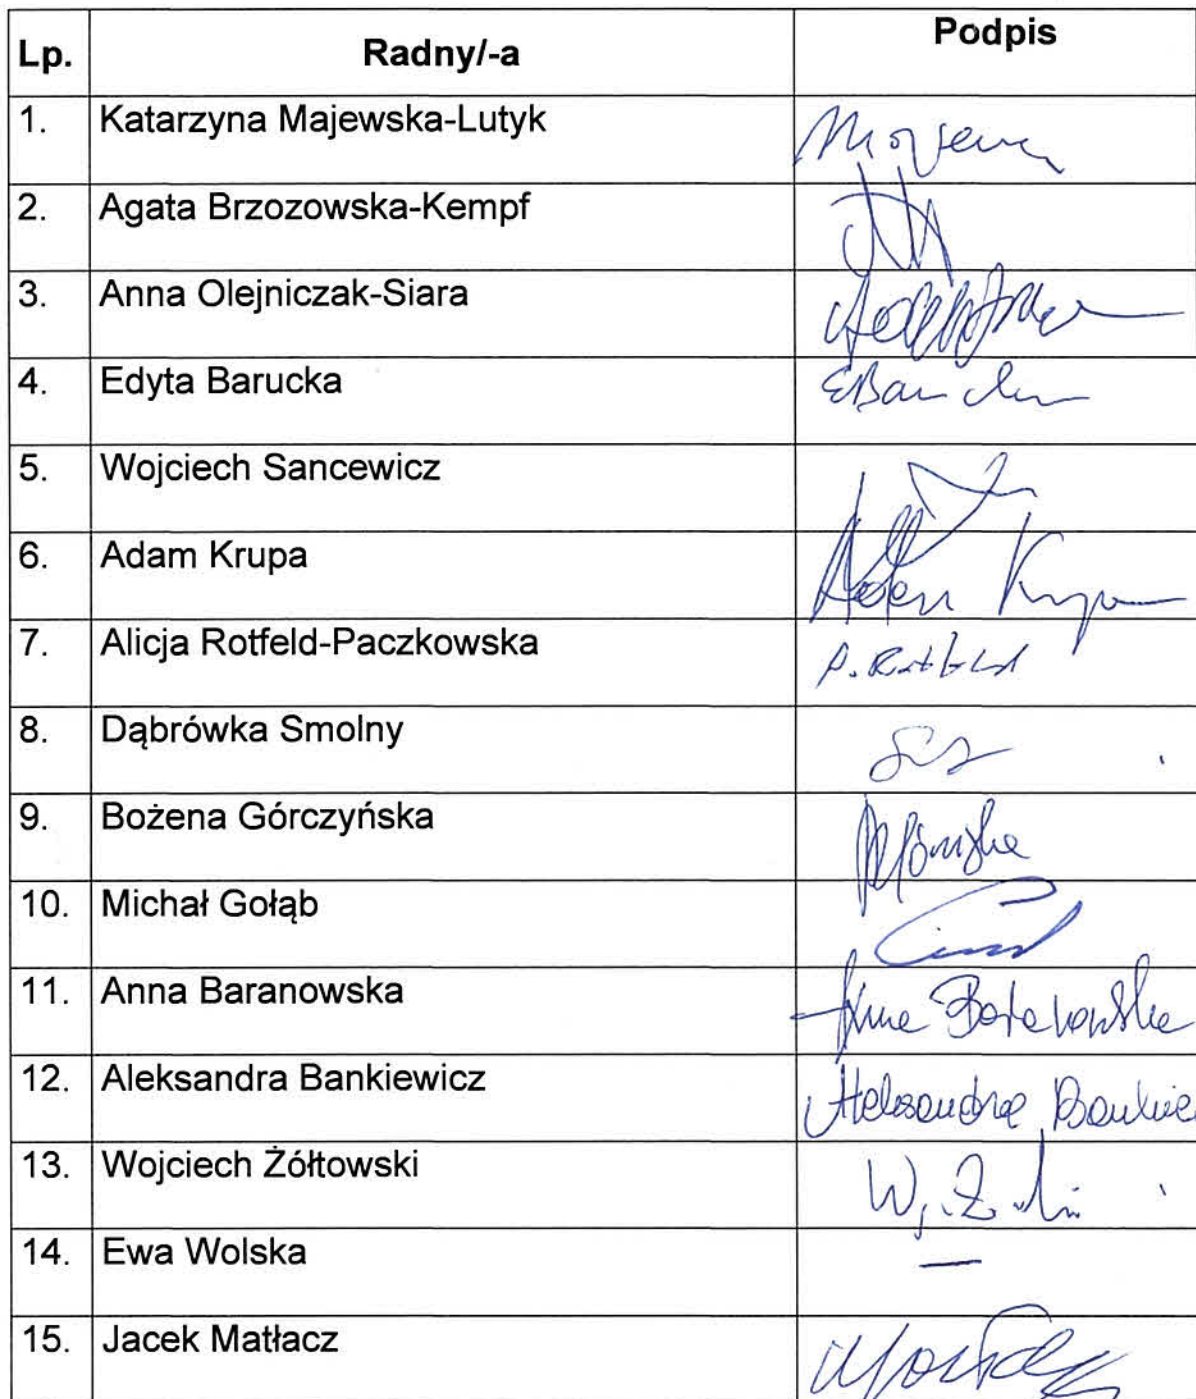 Lp. Radny/-a Podpis
1. Katarzyna Majewska-Lutyk
2. Agata Brzozowska-Kempf
3. Anna Olejniczak-Siara
4. Edyta Barucka
5. Wojciech Sancewicz
6. Adam Krupa Adam Krupa
7. Alicja Rotfeld-Paczkowska A. Rotfeld
8. Dąbrówka Smolny
9. Bożena Górczyńska
10. Michał Gołąb
11. Anna Baranowska Anna Baranowska
12. Aleksandra Bankiewicz Aleksandra
13. Wojciech Żółtowski
14. Ewa Wolska —
15. Jacek Matłacz